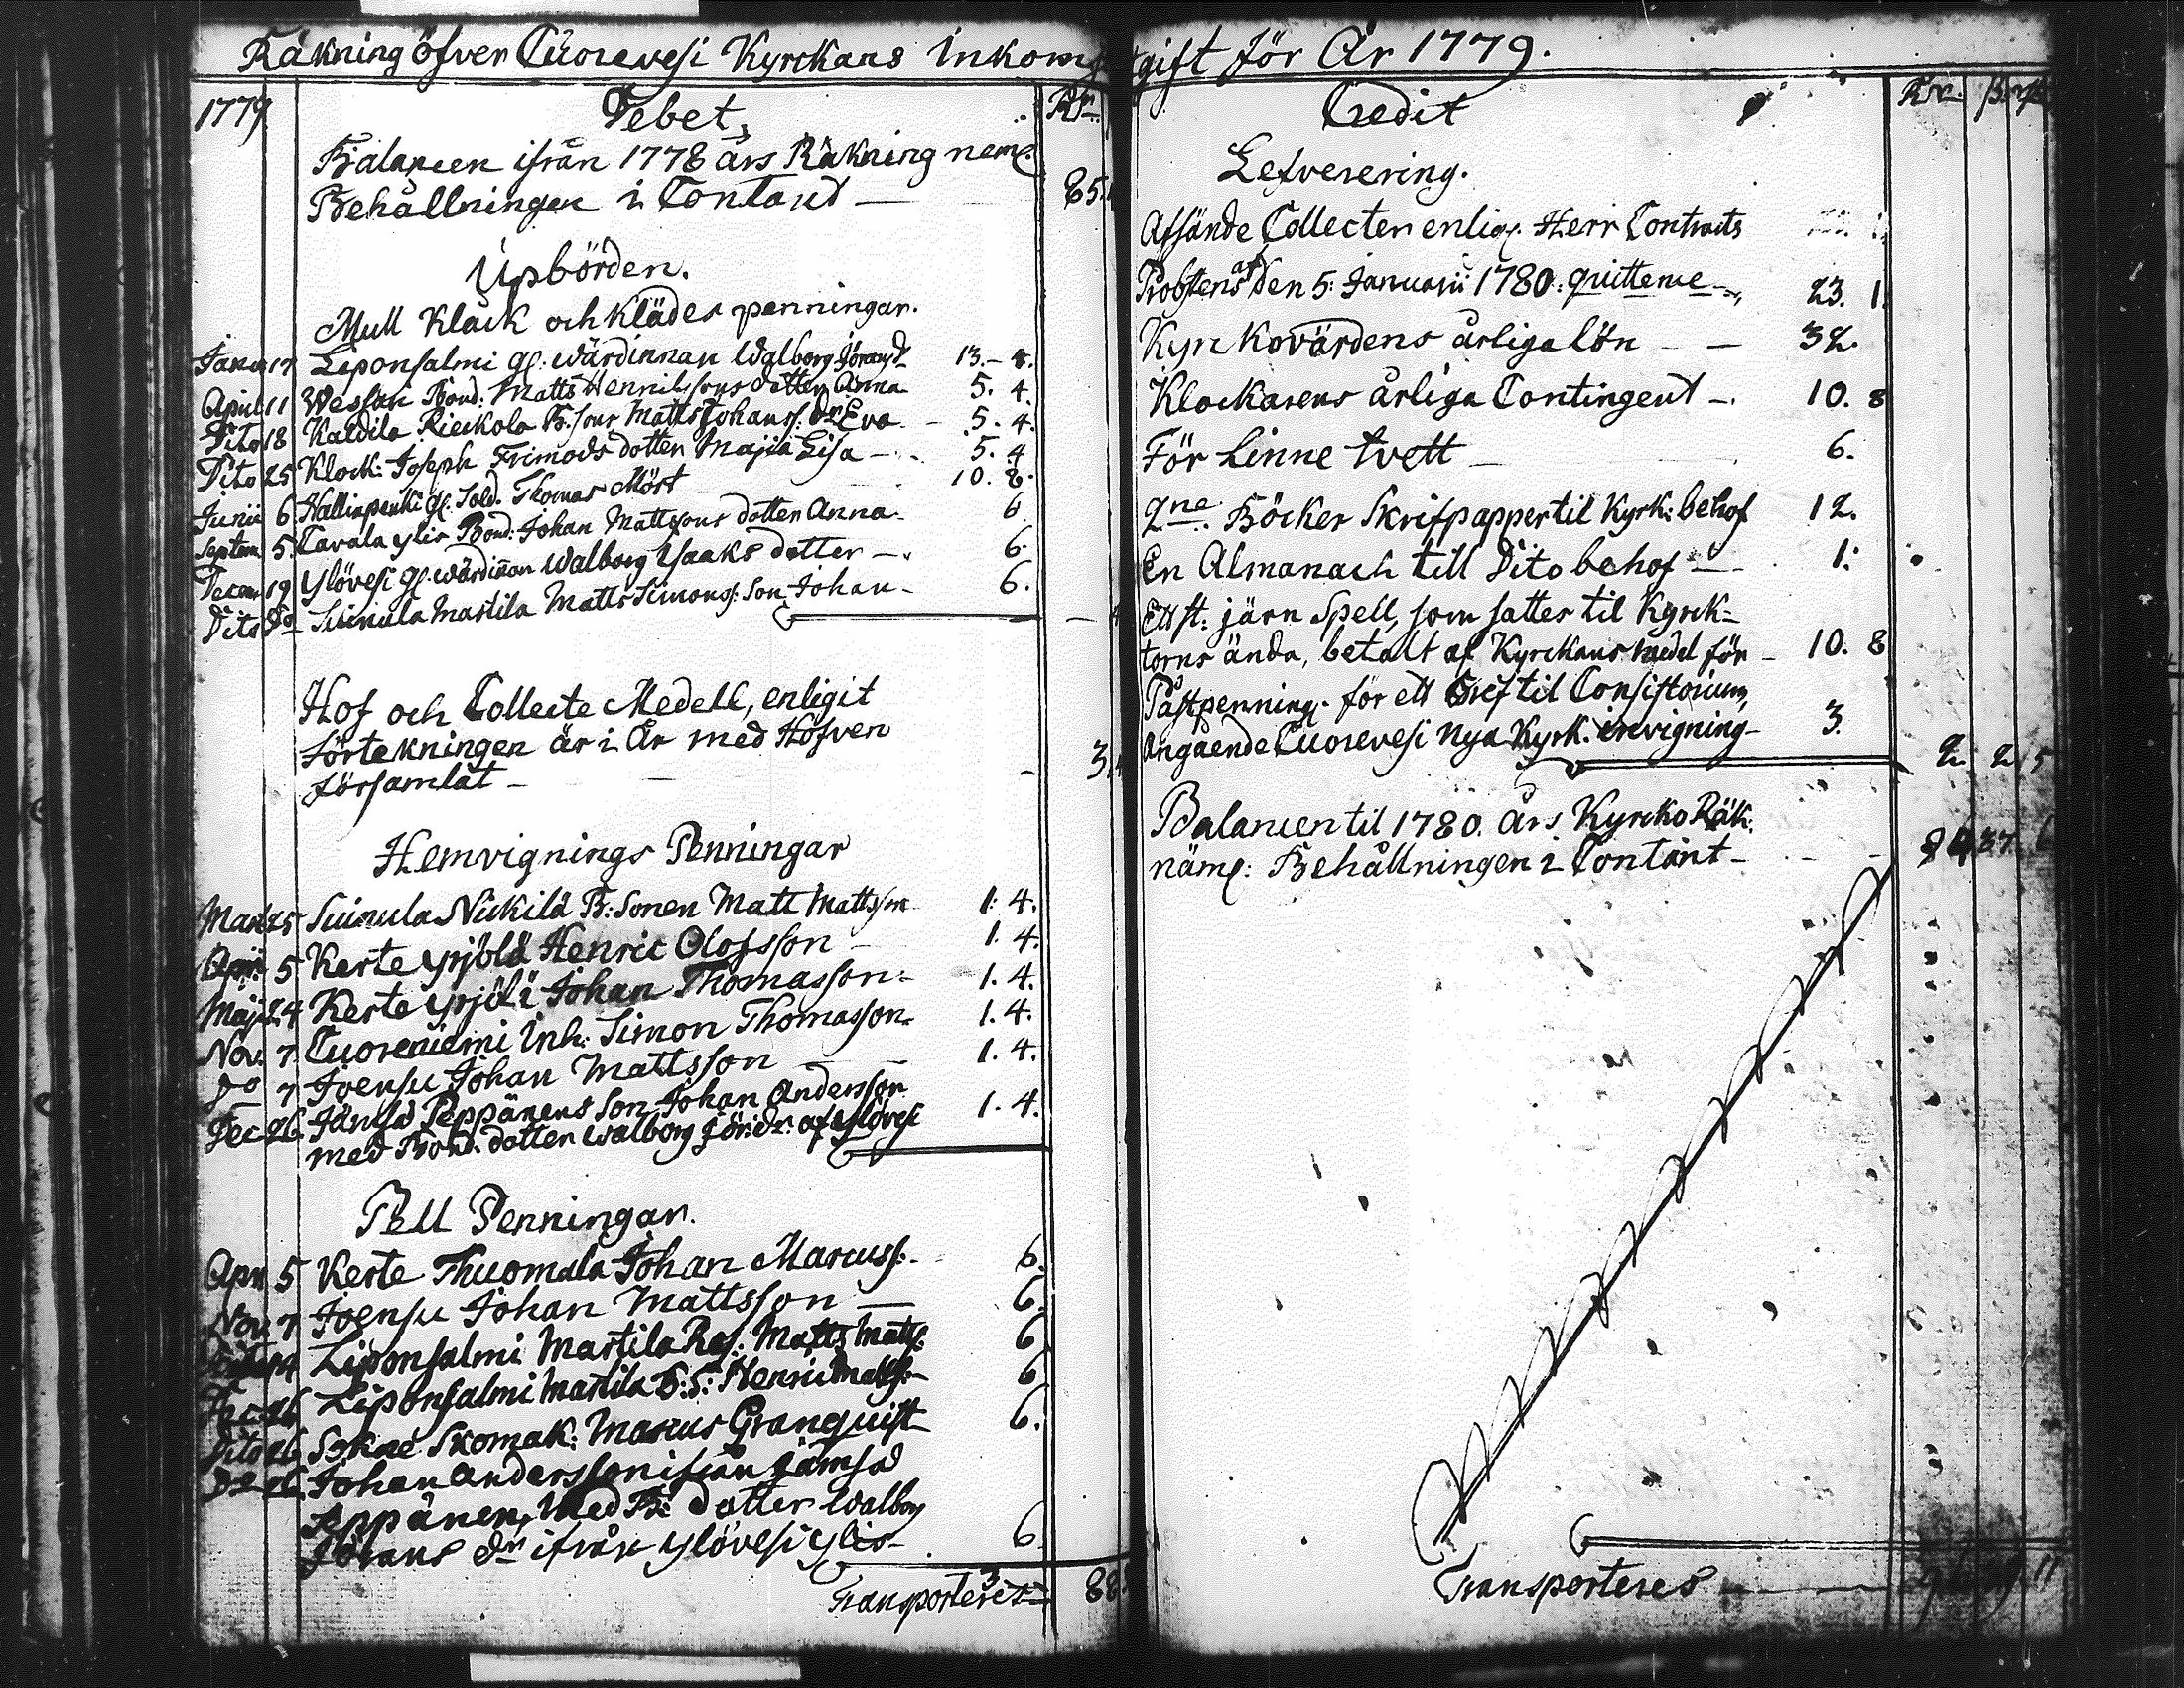 Räkning öfver Cuorevesi Kyrckans Inkoms
gift för År 1779.
1779 Debet, Rdr.
Balancen ifrån 1778 års Räkning neml.
Behållningen i Contant — 85.
Upbörden.
Mull Klåck och Klädes penningar.
Janu 17 Leponsalmi gl: Wärdinnan Walborg Jörans dr 13.- 4.
April 11 Wessari Bond: Matts Henrikssons dotter Anna 5. 4.
Dito 18 Kaldila Rieckola B. sons Matts Johanss: dr Eva - 5. 4.
Dito 25 Klock: Joseph Frimods dotter Majia Lisa - 5. 4
Junii 6 Hallinpenki gl. Sold. Thomas Möst 10. 8.
Septem. 5. Lavala ylis Bond: Johan Mattssons dotter Anna 6
Decem 19 Ylövesi gl. wärdinnan Walborg Ysaaks dotter - 6.
Dito do Suinula Martila Matts Simonss: Son Johan - 6.
Hof och Collecte Medell, enligit
förtekningen är i År med Håfven
församlat - 3.
Hemvignings Penningar
Mart 25 Suinula Nickilä B: Sonen Matt Mattsson 1. 4.
Apr: 5 Kerte yrjölä Henric Olofsson - 1. 4.
Maji 24 Kerte yrjölä Johan Thomasson - 1. 4.
Nov. 7 Cuoreniemi Inh: Simon Thomasson - 1. 4.
do 7 Joensu Johan Mattsson 1. 4.
Dec 26. Jämsä Seppänens Son Johan Andersson
med Bond. dotter Walborg Jör: dr. af Ylövesi 1. 4.
Pell Penningar.
Apr. 5 Kerte Thuomala Johan Marcuss:- 6.
Nov. 7 Joensu Johan Mattsson — 6.
14 Leponsalmi Martila Matts Matts: 6
Dec 26 Leponsalmi Martila B:S: Henric Matts:- 6
Dito 26 Skomak: Marcus Granquist 6.
Do 26. Johan Andersson ifrån Jämsä
Seppänen, med B: dotter Walborg
Jörans dr ifrån Ylövesi ylis - 6
Transporteres 88
Credit Rdr.
Lefverering.
Afsände Collecter enligt Herr Contracts
Probstens af den 5: Januarii 1780. quittence - 23. 1.
Kyrckovärdens årliga lön - — 32.
Klockarens årliga Contingent - 10. 8
För Linne tvett - 6.
2ne. Böcker Skrifpapper til Kyrk: behof 12.
En Almanach till Dito behof - 1:
Ett st: järn Spell, som sattes til Kyrck-
torns ända, betalt af Kyrckans medel för - 10. 8
Påstpenning. för ett Bref til Consistorium,
angående Cuorevesi Nya Kyrk. invigning - 3.
2 2 5
Balancen til 1780. års Kyrcko Räk:
näml: Behållningen i Contant - 37. 6
Transporteres 11